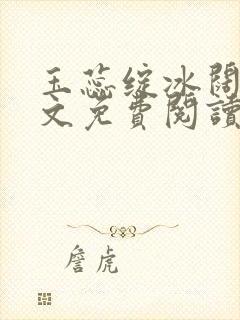 玉蕊綻冰閣
文免費閱讀
詹虎